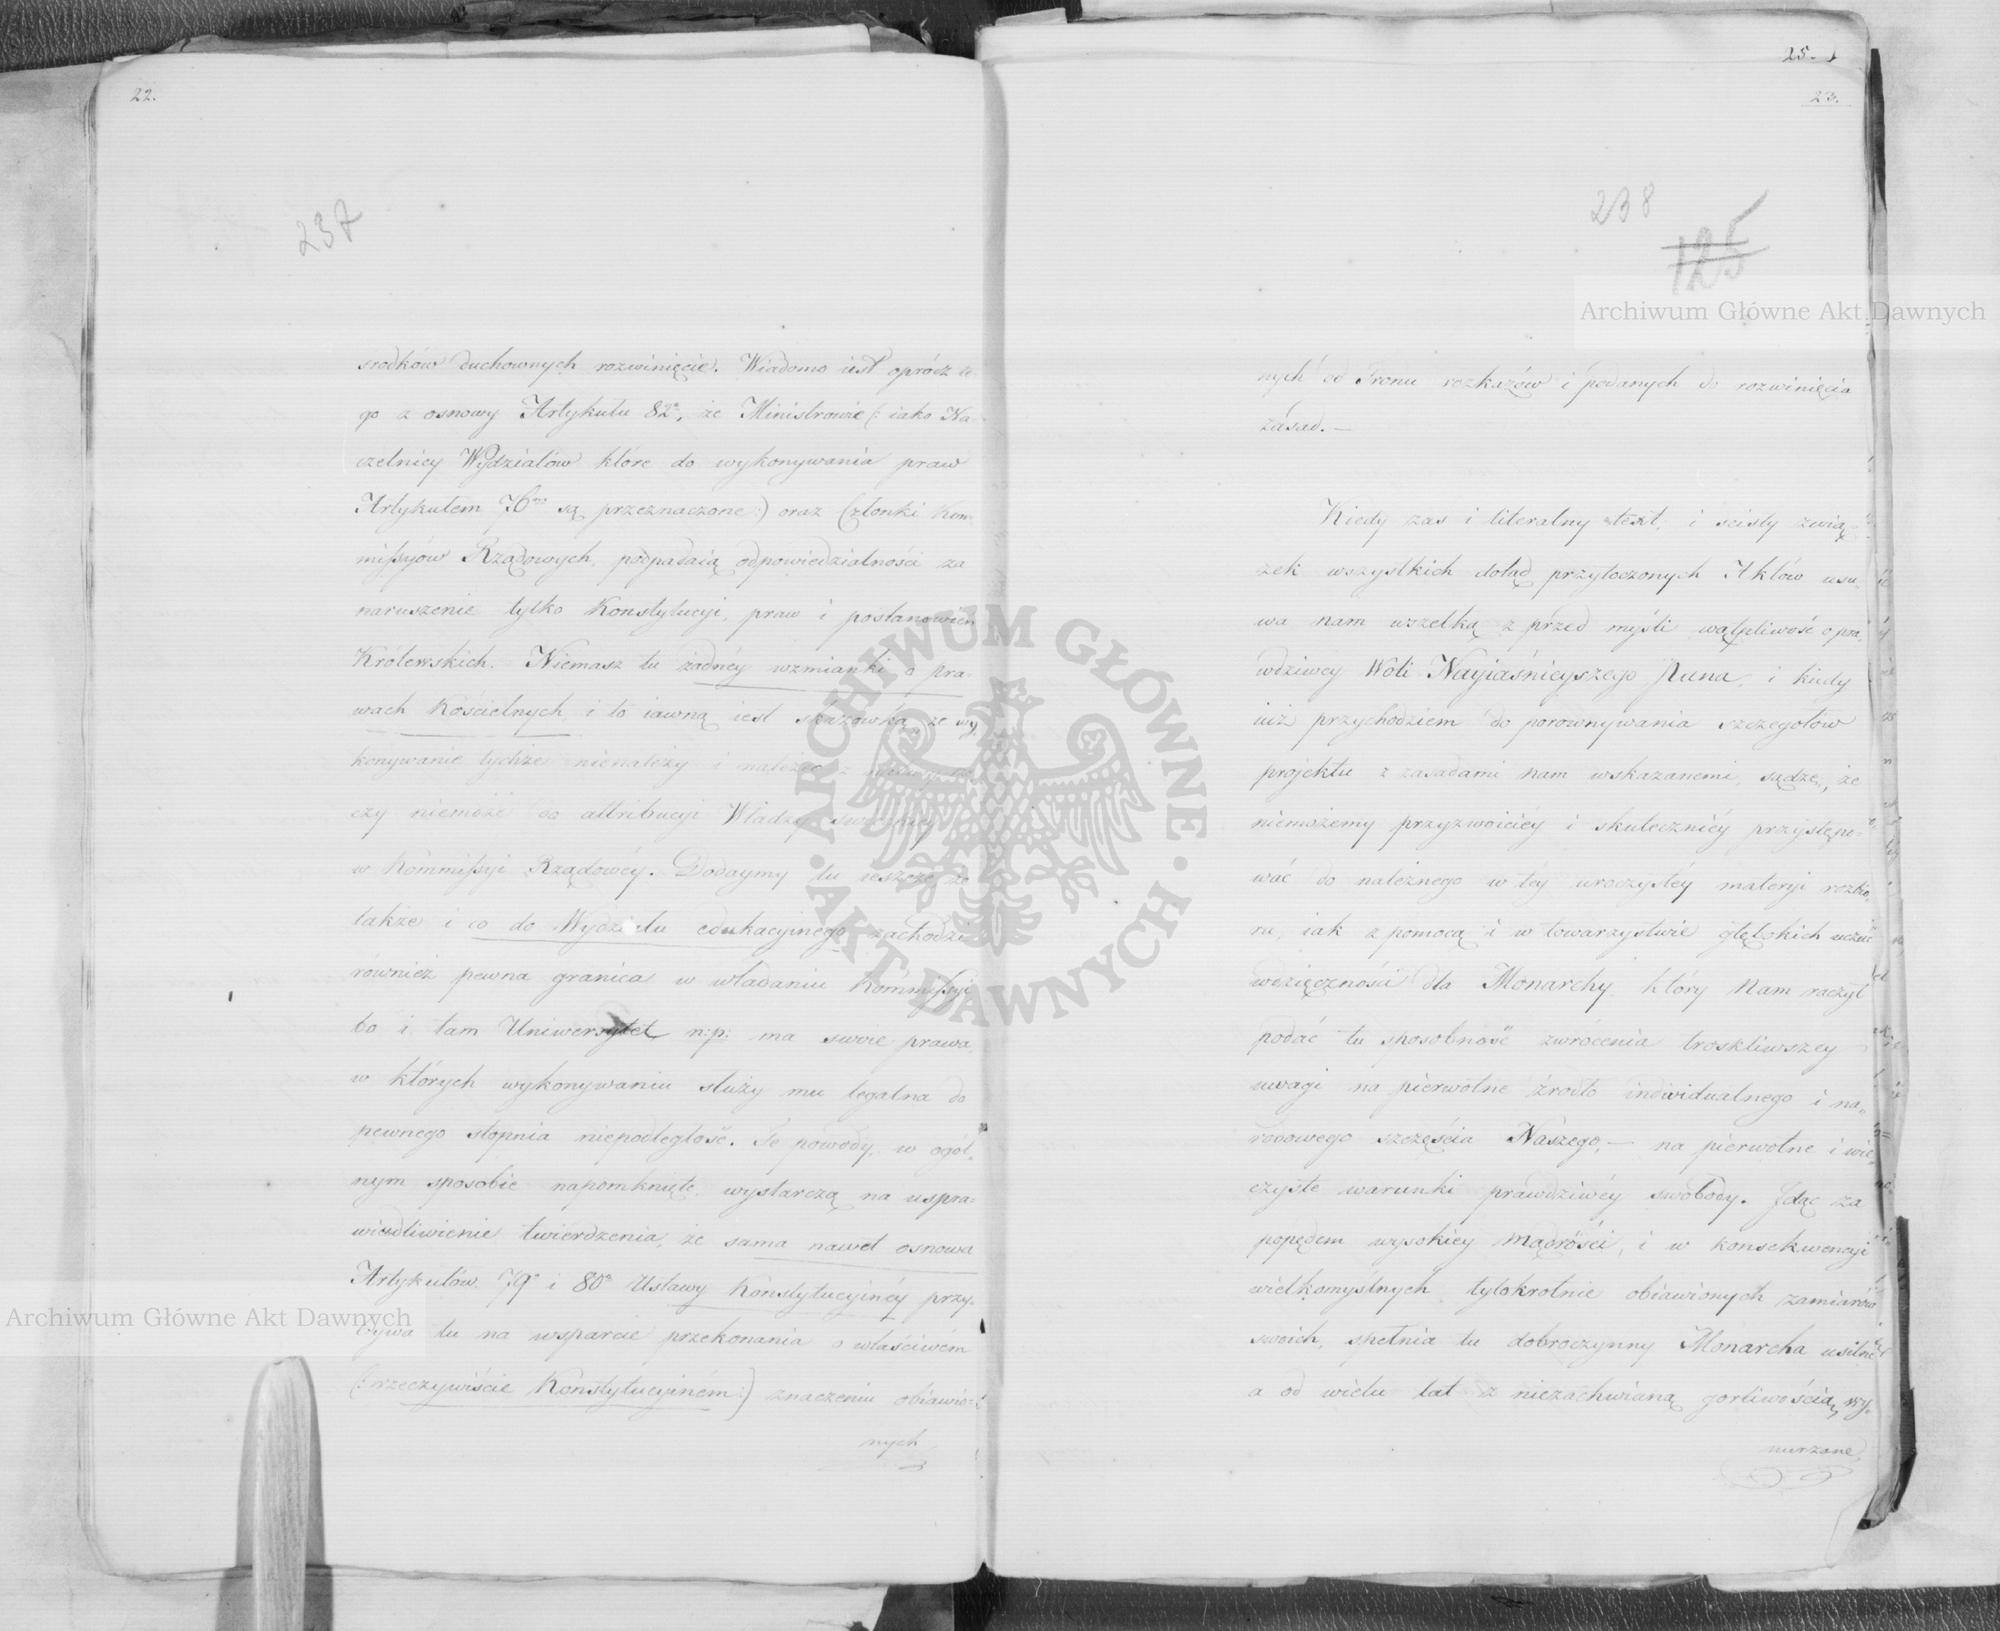 22.
237
srodków duchownych rozwinięcie. Wiadomo iest oprócz te-
go z osnowy Artykułu 82º, że Ministrowie (: iako Na-
czelnicy Wydziałów które do wykonywania praw
Artykułem 76ym są przeznaczone :) oraz Członki Kom-
missyów Rządowych, podpadaią odpowiedzialności za
naruszenie tylko Konstytucyi, praw i postanowień
Królewskich. Niemasz tu żadnéy wzmianki o pra-
wach Kościelnych, i to iawną iest skazówką, że wy-
konywanie tychże nienależy i należeć z
czy niemoże do attribucyi Władzy
w Kommissyi Rządowéy. Dodaymy tu ieszcze że
także i co do Wydziału edukacyinego zachodzi
również pewna granica w władaniu Kommissyi
bo i tam Uniwersytet n:p: ma swoie prawa,
w których wykonywaniu służy mu legalna do
pewnego stopnia niepodległość. Te powody, w ogól-
nym sposobie napomknięte, wystarczą na uspra-
wiedliwienie twierdzenia, że sama nawet osnowa
Artykułów 79º i 80º Ustawy Konstytucyinéy przy-
bywa tu na wsparcie przekonania o właściwém
(: rzeczywiście Konstytucyiném :) znaczeniu obiawio-
nych
25.
23.
238
125
nych od Tronu rozkazów i podanych do rozwinięcia
zasad. —
Kiedy zas i literalny text, i scisły zwią-
zek wszystkich dotąd przytoczonych Aktów usu-
wa nam wszelką z przed myśli wątpliwość o pra-
wdziwey Woli Nayiaśnieyszego Pana, i kiedy
iuż przychodziem do porownywania szczegołów
projektu z zasadami nam wskazanemi, sądzę, że
niemożemy przyzwoiciéy i skuteczniéy przystępo-
wać do należnego w téy uroczystéy materyi rozbio-
ru, iak z pomocą i w towarzystwie głębokich uczuć
wdzięczności dla Monarchy, który Nam raczył
podać tu sposobność zwrócenia troskliwszey
uwagi na pierwotne źrodło individualnego i na-
rodowego szczęścia Naszego, — na pierwotne i wie-
czyste warunki prawdziwéy swobody. Idąc za
popędem wysokiey mądrości, i w konsekwencyi
wielkomyślnych tylokrotnie obiawionych zamiarów
swoich, spełnia tu dobroczynny Monarcha usilne
a od wielu lat z niezachwianą gorliwością wy-
nurzone
Archiwum Główne Akt Dawnych
Archiwum Główne Akt Dawnych
ARCHIWUM GŁÓWNE
AKT DAWNYCH